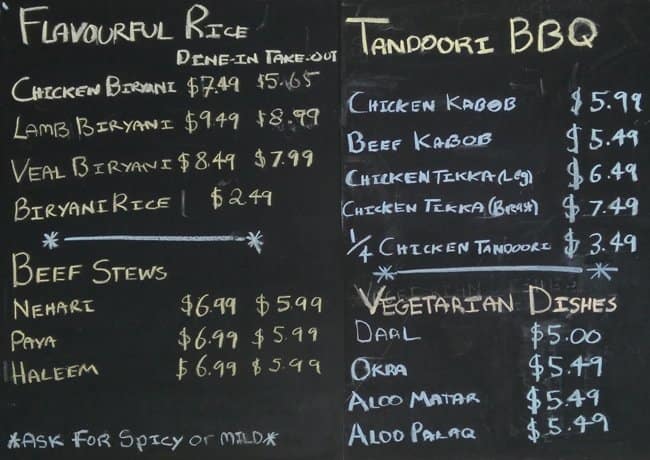 FLAVOURFUL RICE
DINE-IN TAKE-OUT
CHICKEN BIRYANI $7.49 $5.65
LAMB BIRYANI $9.49 $8.99
VEAL BIRYANI $8.49 $7.99
BIRYANI RICE $2.49
BEEF STEWS
NEHARI $6.99 $5.99
PAYA $6.99 $5.99
HALEEM $6.99 $5.99
*ASK FOR SPICY or MILD*
TANDOORI BBQ
CHICKEN KABOB $5.99
BEEF KABOB $5.49
CHICKEN TIKKA (Leg) $6.49
CHICKEN TIKKA (Breast) $7.49
1/4 CHICKEN TANDOORI $3.49
VEGETARIAN DISHES
DAAL $5.00
OKRA $5.49
ALOO MATAR $5.49
ALOO PALAQ $5.49